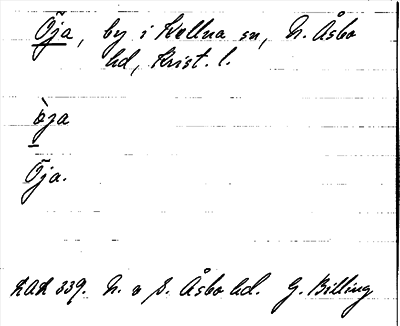 Öja, by i Hellna sn, N. Åsbo
hd, Krist. l.
òja
Öja.
LAL 339. N. o S. Åsbo hd. G. Billing